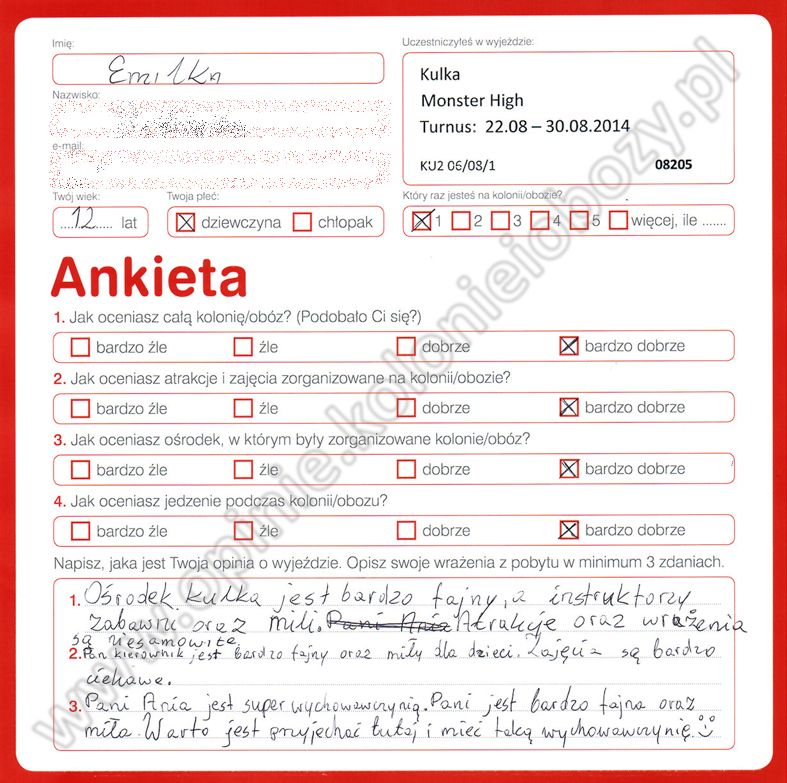 Imię:
Emilka
Uczestniczyłeś w wyjeździe:
Kulka
Monster High
Turnus: 22.08 – 30.08.2014
KU2 06/08/1 08205
Nazwisko:
e-mail:
Twój wiek:
....12..... lat
Twoja płeć:
dziewczyna chłopak
Który raz jesteś na kolonii/obozie?
1 2 3 4 5 więcej, ile .......
Ankieta
1. Jak oceniasz całą kolonię/obóz? (Podobało Ci się?)
bardzo źle źle dobrze bardzo dobrze
2. Jak oceniasz atrakcje i zajęcia zorganizowane na kolonii/obozie?
bardzo źle źle dobrze bardzo dobrze
3. Jak oceniasz ośrodek, w którym były zorganizowane kolonie/obóz?
bardzo źle źle dobrze bardzo dobrze
4. Jak oceniasz jedzenie podczas kolonii/obozu?
bardzo źle źle dobrze bardzo dobrze
Napisz, jaka jest Twoja opinia o wyjeździe. Opisz swoje wrażenia z pobytu w minimum 3 zdaniach.
1. Ośrodek kulka jest bardzo fajny, a instruktorzy
zabawni oraz mili. Pani Ania Atrakcje oraz wrażenia
są niesamowite
2. Pan kierownik jest bardzo fajny oraz miły dla dzieci. Zajęcia są bardzo
ciekawe.
3. Pani Ania jest super wychowawczynią. Pani jest bardzo fajna oraz
miła. Warto jest przyjechać tutaj i mieć taką wychowawczynię.
www.opinie.kolonieiobozy.pl